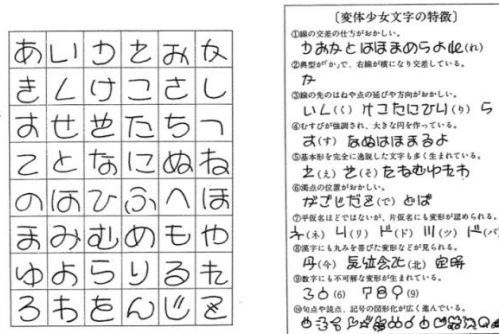 あいうえおか
きくけこさし
すせそたちつ
てとなにぬね
のはひふへほ
まみむめもや
ゆよらりるれ
ろわをんじで
[変体少女文字の特徴]
①線の交差の仕方がおかしい。
うおなとはほまめらよれ(れ)
②典型が「か」で、右線が横になり交差している。
か
③線の先のはねや点の延びや方向がおかしい。
いし(く)けこたにひり(り)ら
④むすびが強調され、大きな円を作っている。
す(す)なぬはほまるよ
⑤基本形を完全に逸脱した文字も多く生まれている。
え(え)せ(そ)たねむゆをわ
⑥濁点の位置がおかしい。
がごじだで(で)どば
⑦平仮名ほどではないが、片仮名にも変形が認められる。
ネ(ネ)リ(リ)ド(ド)ツ(ツ)
⑧漢字にも丸みを帯びた変形などが見られる。
(今) (北)
⑨数字にも不可解な変形が生まれている。
36(6) 789(9)
⑩句点や読点、記号の図形化が広く進んでいる。